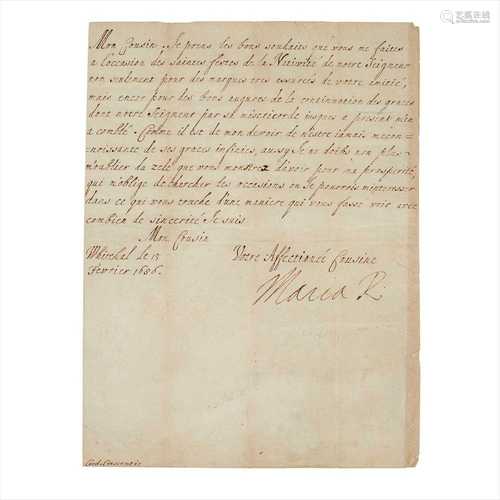 Mon Cousin. Je prens les bons souhaits que vous me faites
a l'occasion des saintes festes de la Nativité de notre Seigneur
non seulement pour des marques tres assurées de votre amitié,
mais encor pour des bons augures de la continuation des graces
dont notre Seigneur par sa misericorde jusques a present m'en
a comblé. Comme il est de mon devoir de n'estre jamais mecon=
=noissante de ses graces infinies aussy Je ne doibs non plus
m'oublier du zele que vous monstrez d'avoir pour ma prosperité,
qui m'oblige de chercher les occasions ou Je pourrois m'interesser
dans ce qui vous touche d'une maniere qui vous fasse voir avec
combien de sincerité Je suis
Mon Cousin
Whitehal le 15 Votre Affectionée Cousine
Fevrier 1686.
Maria R
Card.